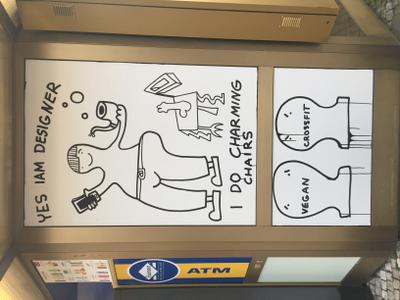 YES IAM DESIGNER
I DO CHARMING
CHAIRS
CROSSFIT
VEGAN
ATM